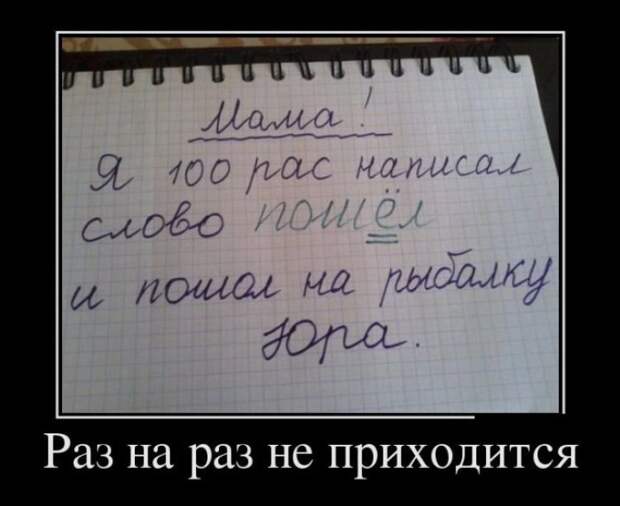 Мама!
Я 100 рас написал
слово пошёл
и пошол на рыбалку
Юра.
Раз на раз не приходится